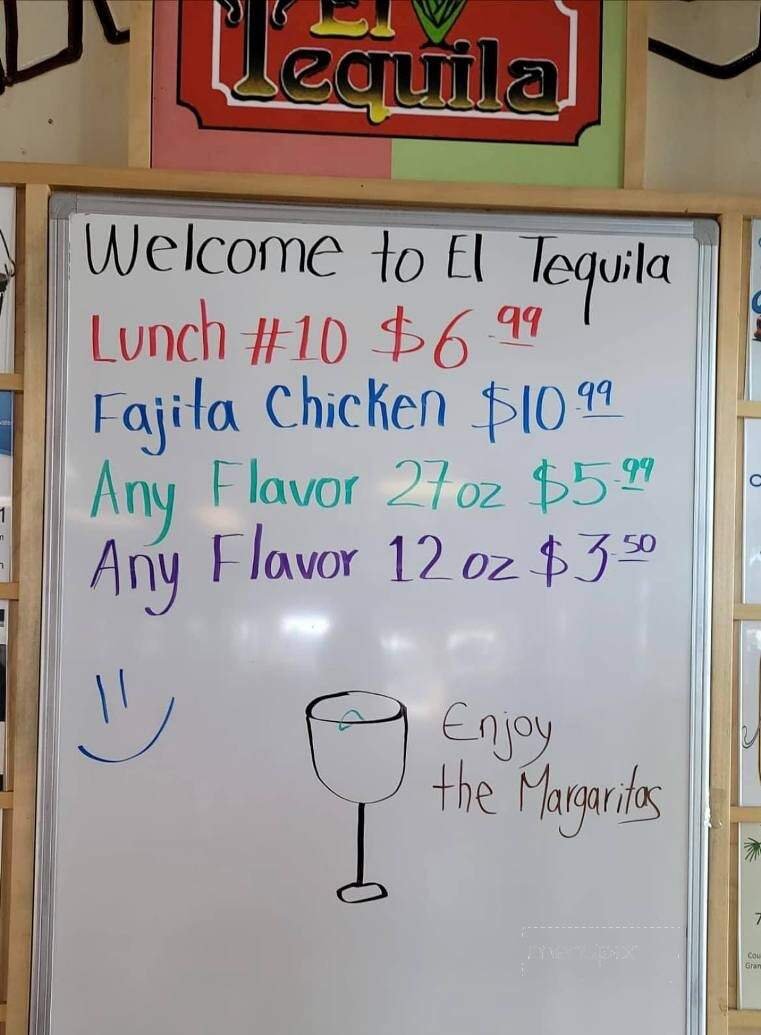 El
Tequila
Welcome to El Tequila
Lunch #10 $6.99
Fajita Chicken $10.99
Any Flavor 27oz $5.99
Any Flavor 12oz $3.50
Enjoy
the Margaritas